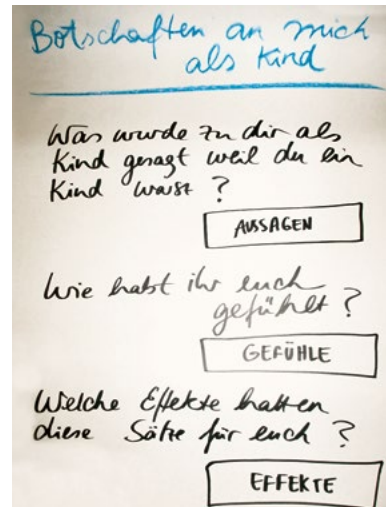 Botschaften an mich
als Kind
Was wurde zu dir als
Kind gesagt weil du ein
Kind warst ?
AUSSAGEN
Wie habt ihr euch
gefühlt ?
GEFÜHLE
Welche Effekte hatten
diese Sätze für euch ?
EFFEKTE